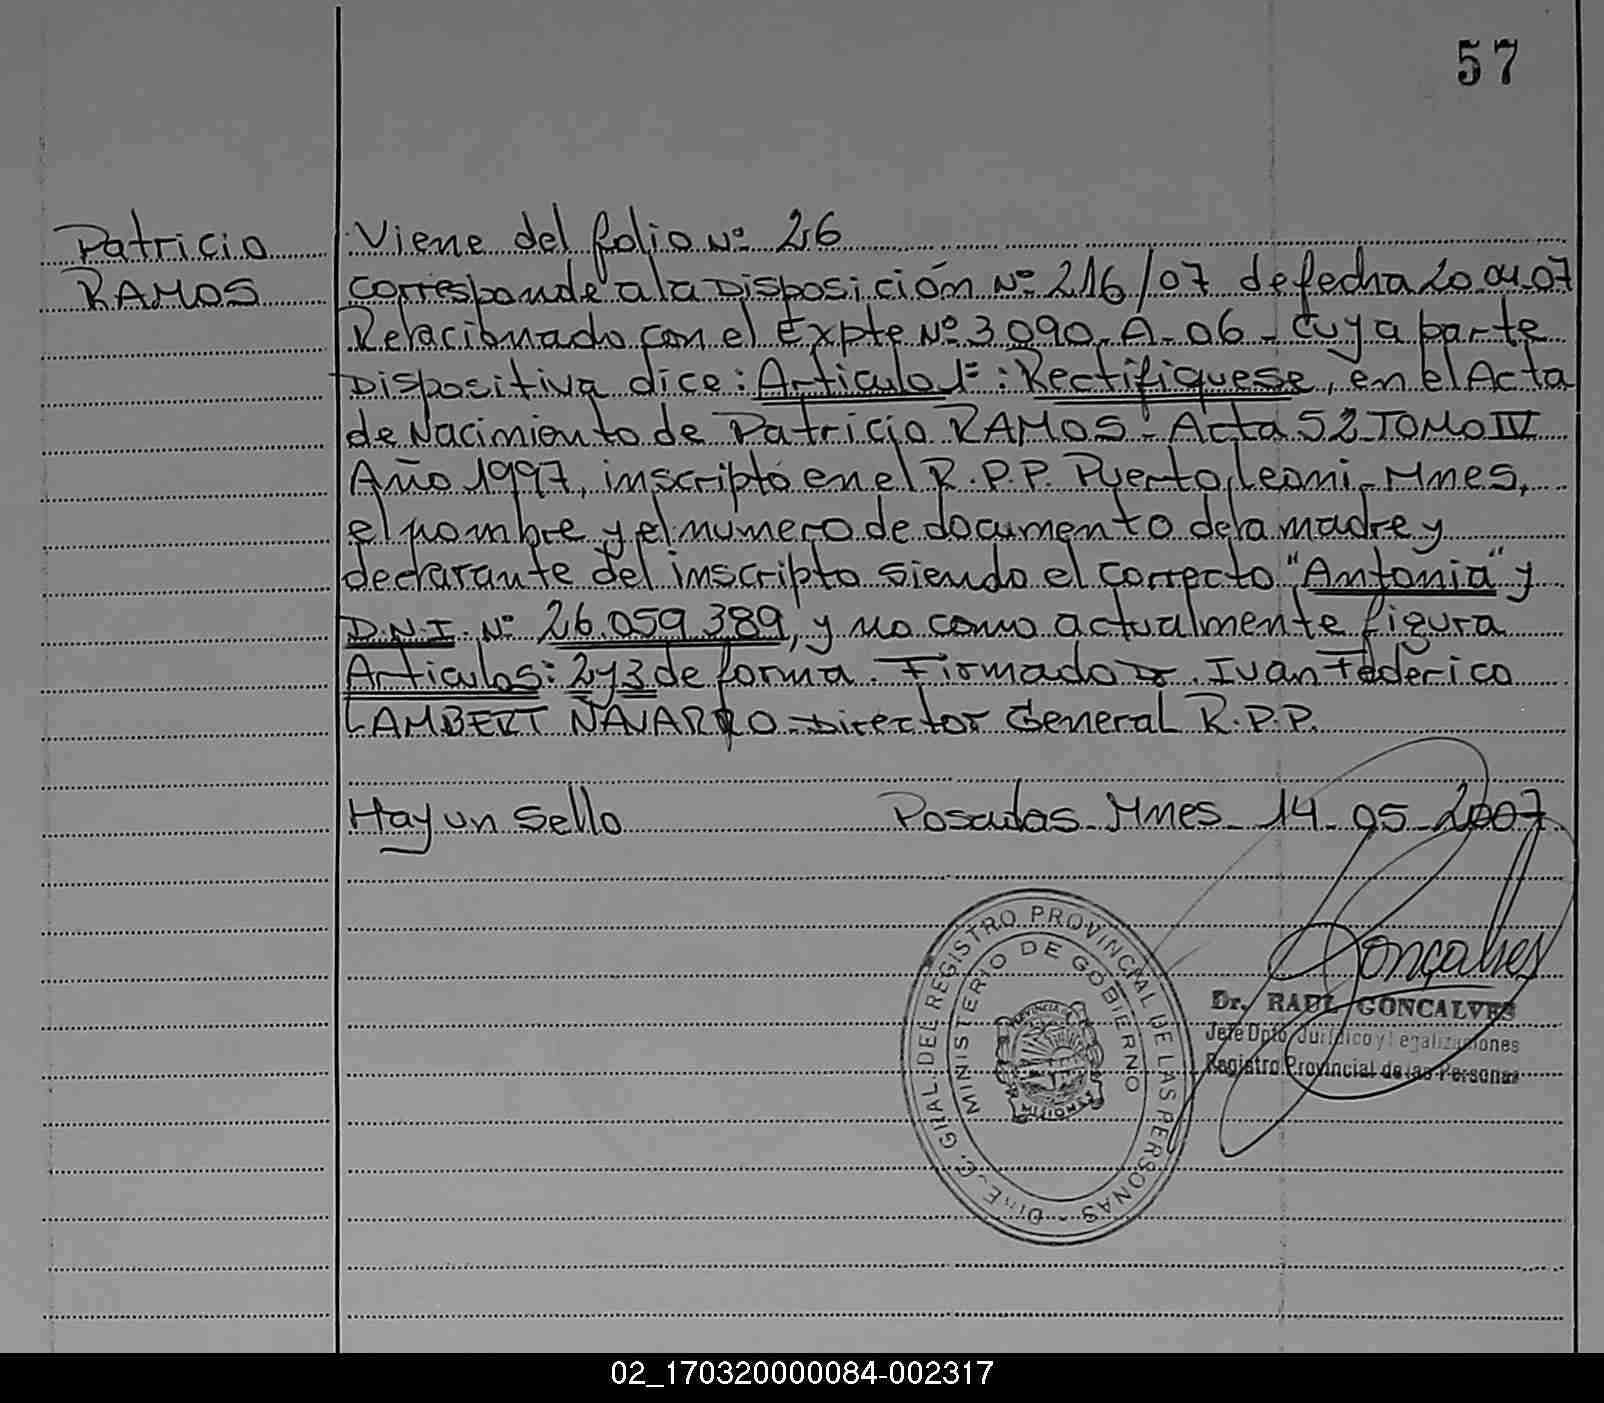 57
Patricio
RAMOS
Viene del folio Nº 26
corresponde a la Disposición Nº 216/07 de fecha 20.04.07
Relacionado con el Expte Nº 3.090-A-06 - cuya parte
Dispositiva dice: Articulo 1º: Rectifiquese, en el Acta
de Nacimiento de Patricio RAMOS - Acta 52 TOMO IV
Año 1997, inscripto en el R.P.P. Puerto Leoni - Mnes,
el nombre y el numero de documento de la madre y
declarante del inscripto siendo el correcto "Antonia" y
D.N.I. Nº 26.059.389, y no como actualmente figura
Articulos: 2 y 3 de forma. Firmado Dr. Ivan Federico
LAMBERT NAVARRO - Director General R.P.P.
Hay un Sello Posadas - Mnes - 14 - 05 - 2007
DIREC. GRAL. DEL REGISTRO PROVINCIAL DE LAS PERSONAS -
MINISTERIO DE GOBIERNO
PROVINCIA DE
MISIONES
Goncalves
Dr. RAUL GONCALVES
Jefe Dpto. Jurídico y Legalizaciones
Registro Provincial de las Personas
02_170320000084-002317